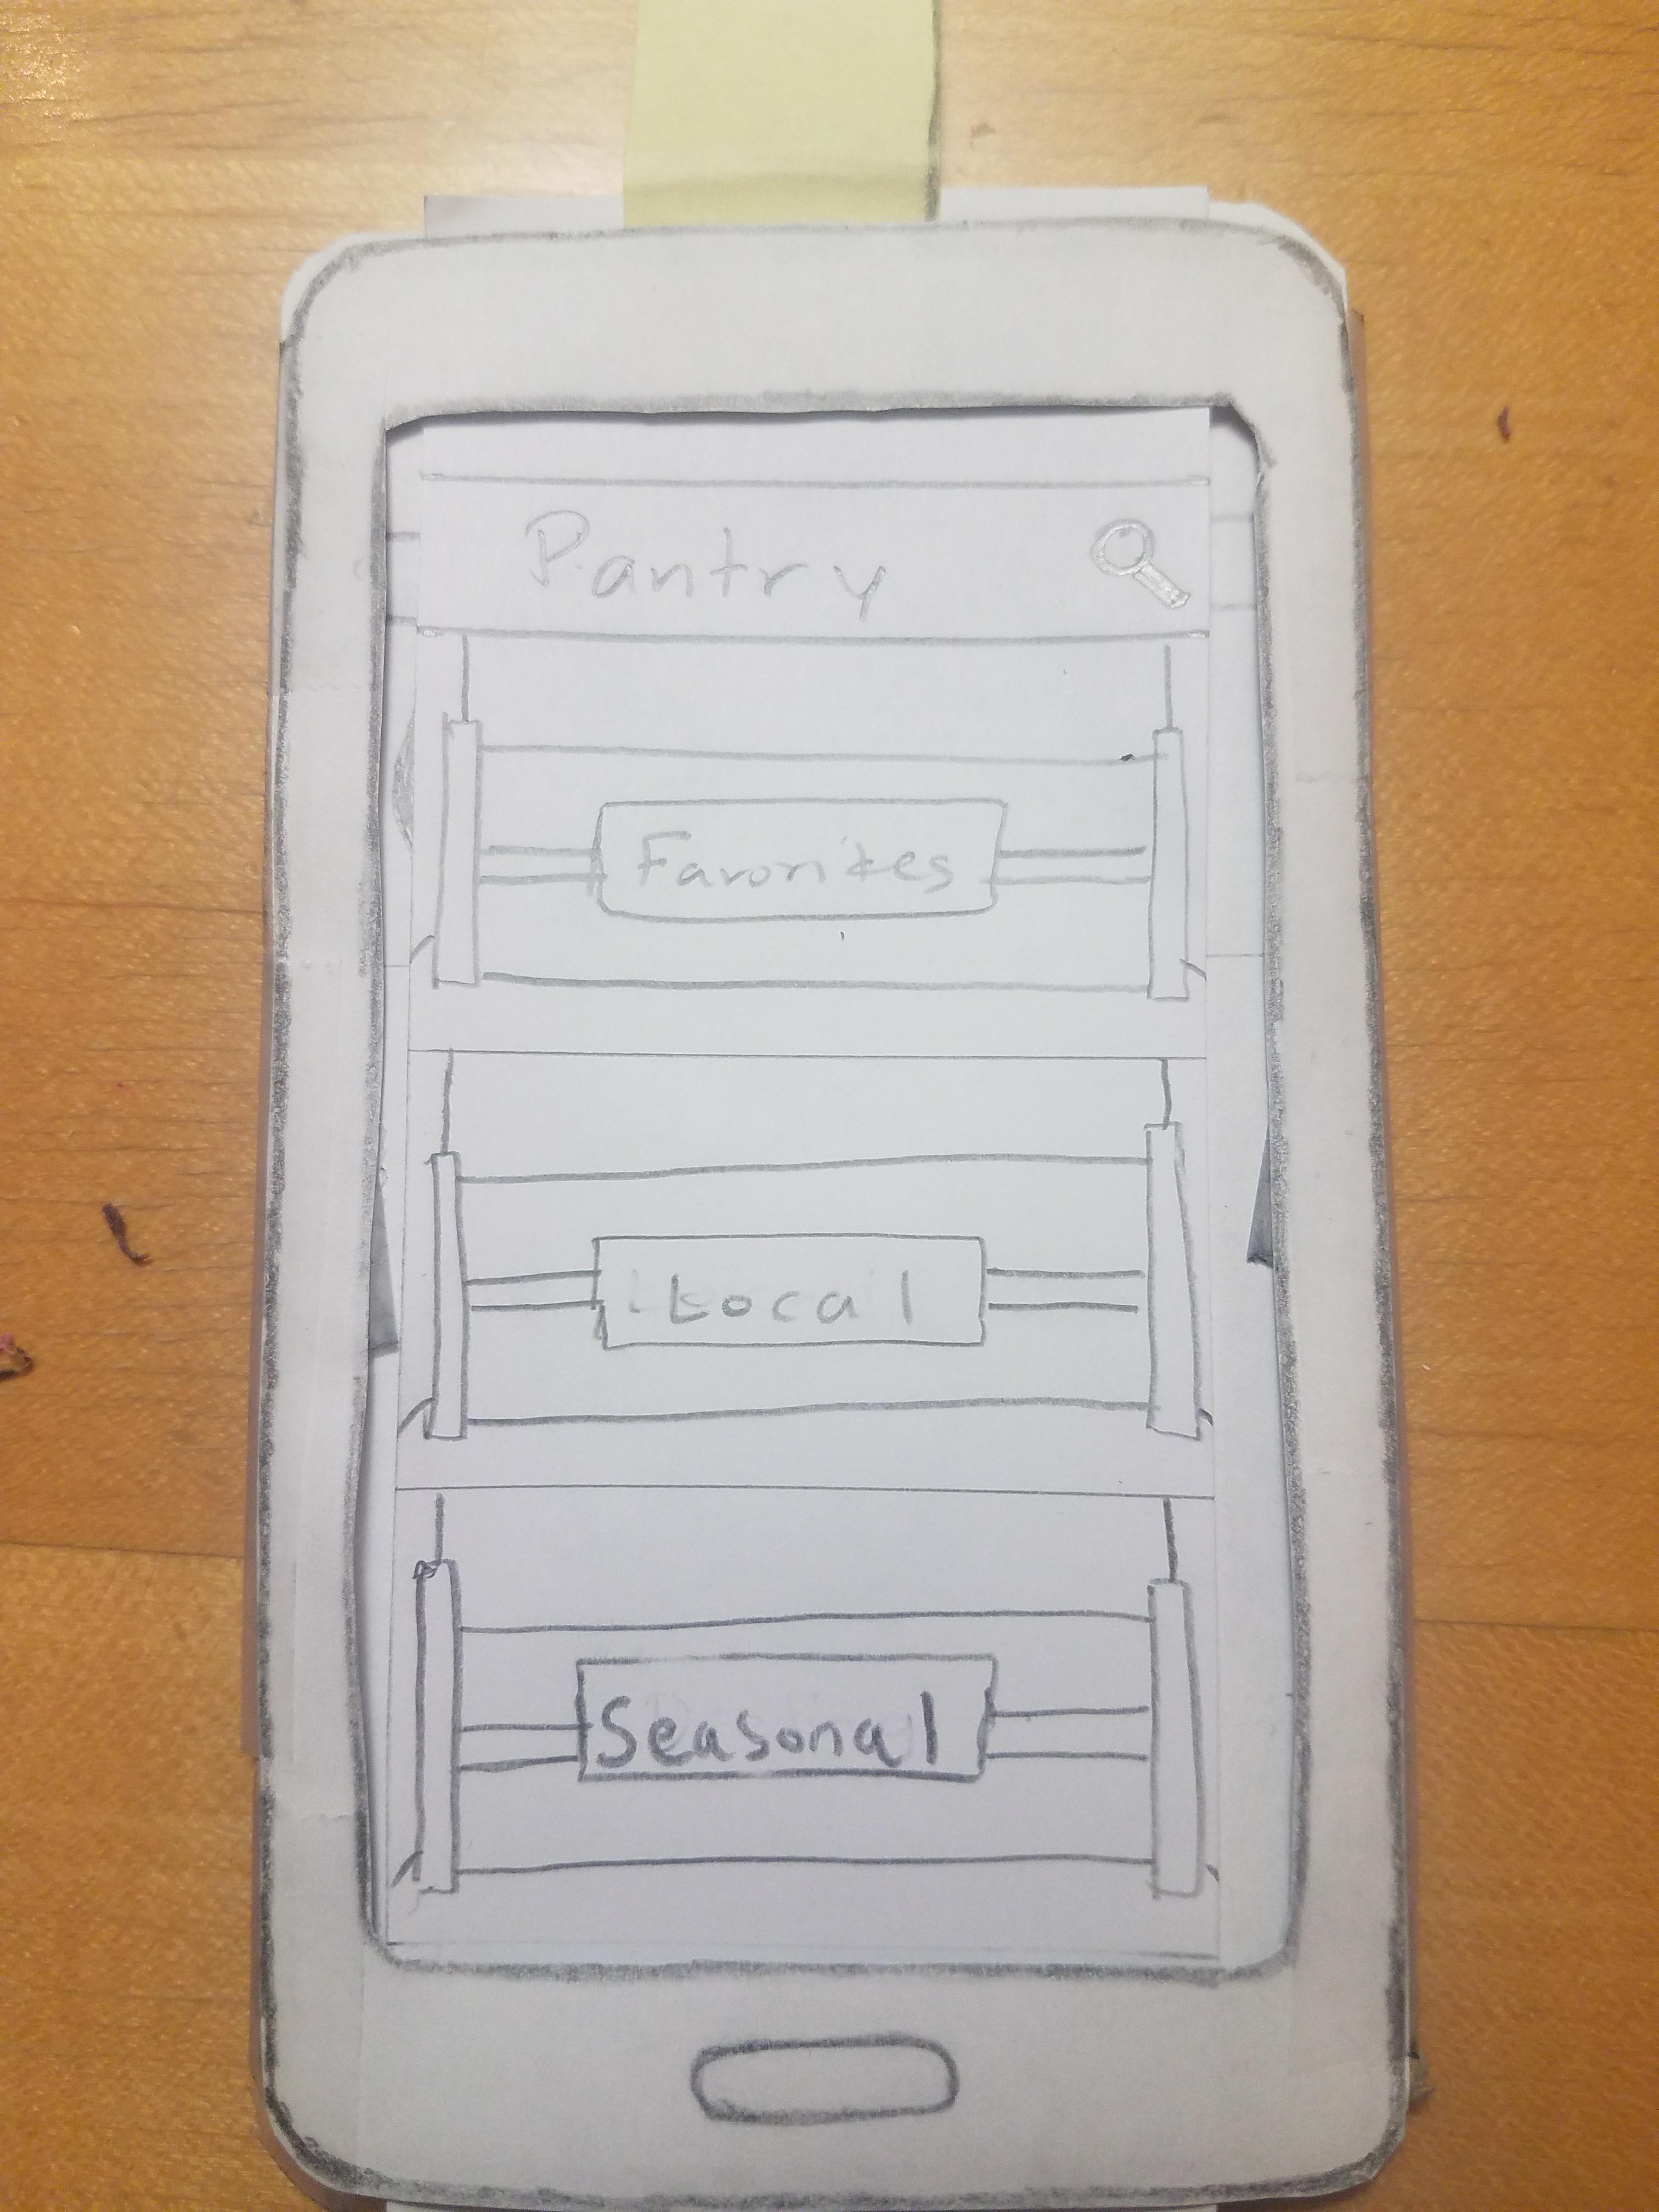 Pantry
Favorites
Local
Seasonal